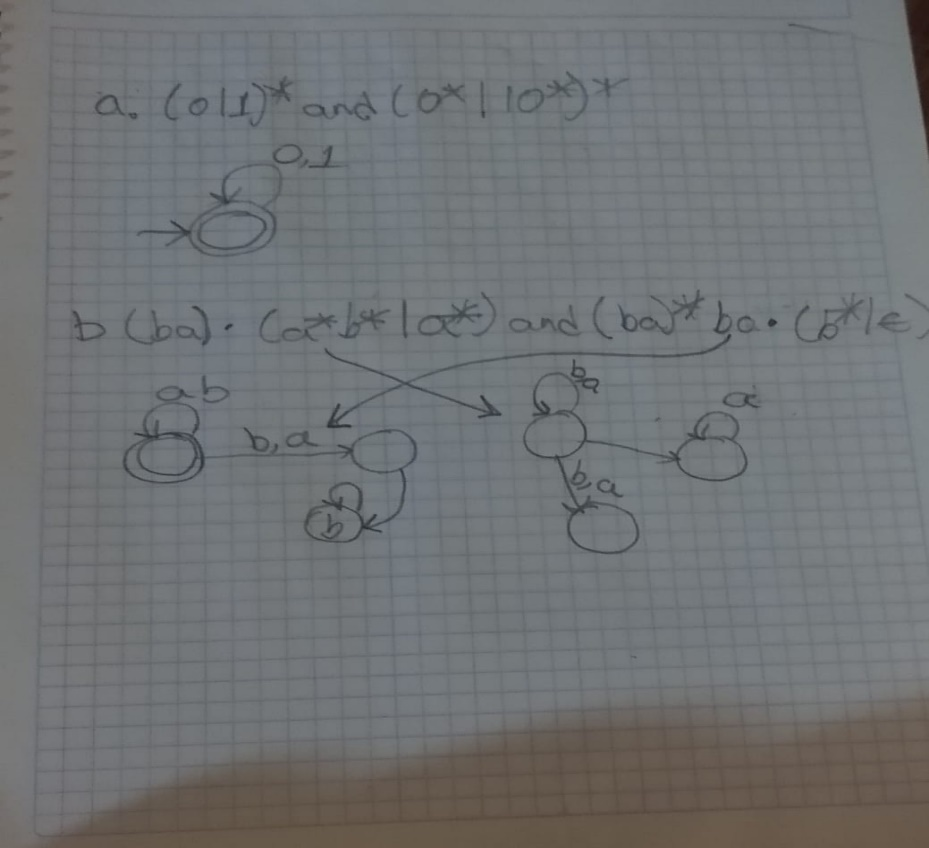 a. (0|1)* and (0*|10*)*
0,1
b (ba). (a*b*|a*) and (ba)* ba. (b*|ε)
ab
b,a
b
ba
a
b,a